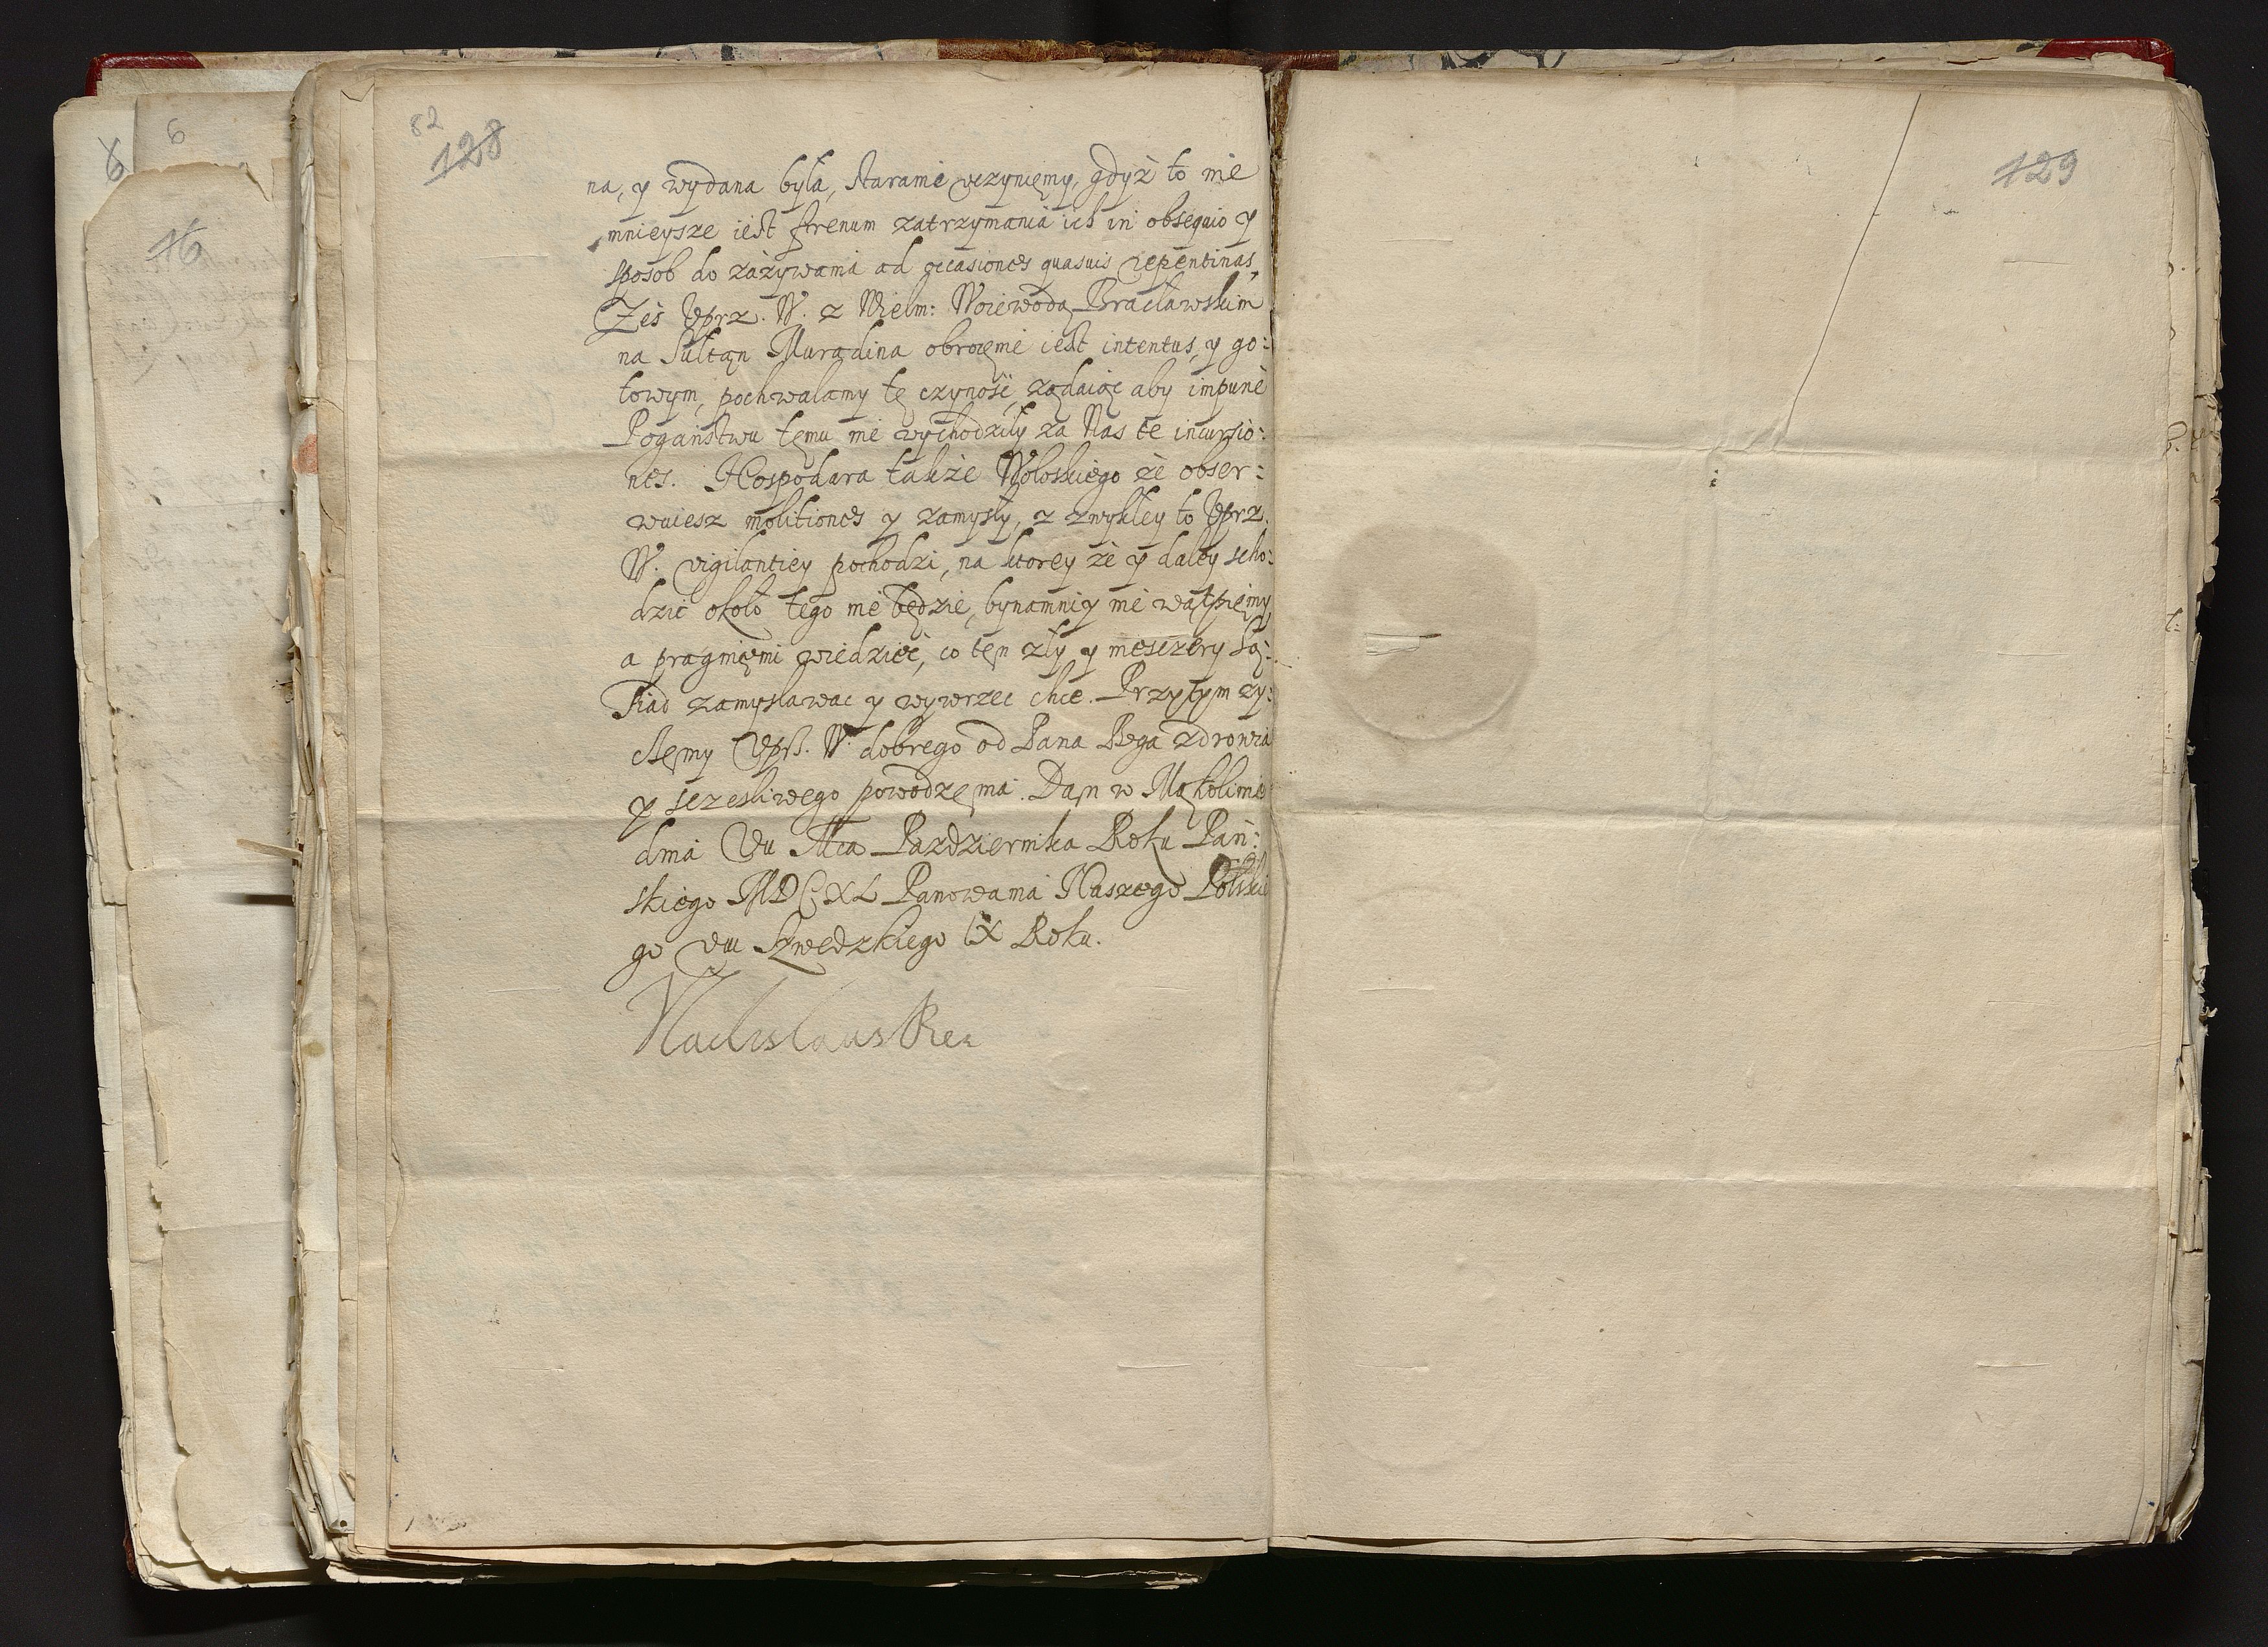 82
128
129
6
6
16
na, y wydana była, staranie uczynięmy, gdyż to nie
mnieysze iest frenum zatrzymania ich in obsequio y
sposob do zażywania ad occasiones quasuis repentinas,
Żeś Uprz. W. z Wielm: Woiewodą Bracławskim
na Sultąn Muradina obrocenie iest intentus, y go:
towym, pochwalamy tę czyność, żądaiąc aby impunè
Pogaństwu tęmu nie wychodziły za Nas te incursio:
nes. Hospodara także Wołoskiego że obser:
wuiesz molitiones y zamysły, z zwykłey to Uprz.
W. vigilantiey pochodzi, na ktorey że y daley scho:
dzić około tego nie będzie, bynamniey nie wątpięmy,
a pragnięmi wiedzieć, co tęn zły y niesczery Są:
siad zamyslawac y wywrzec chce. Przytym zy:
cżęmy Uprz. W. dobrego od Pana Boga zdrowia
y sczesliwego powodzęnia. Dąn w Mąkolinie
dnia VII Mca Pazdziernika Roku Pań:
skiego MDCXL Panowania Naszego Polskie
go VIII Szwedzkiego IX Roku.
Vladislaus Rex